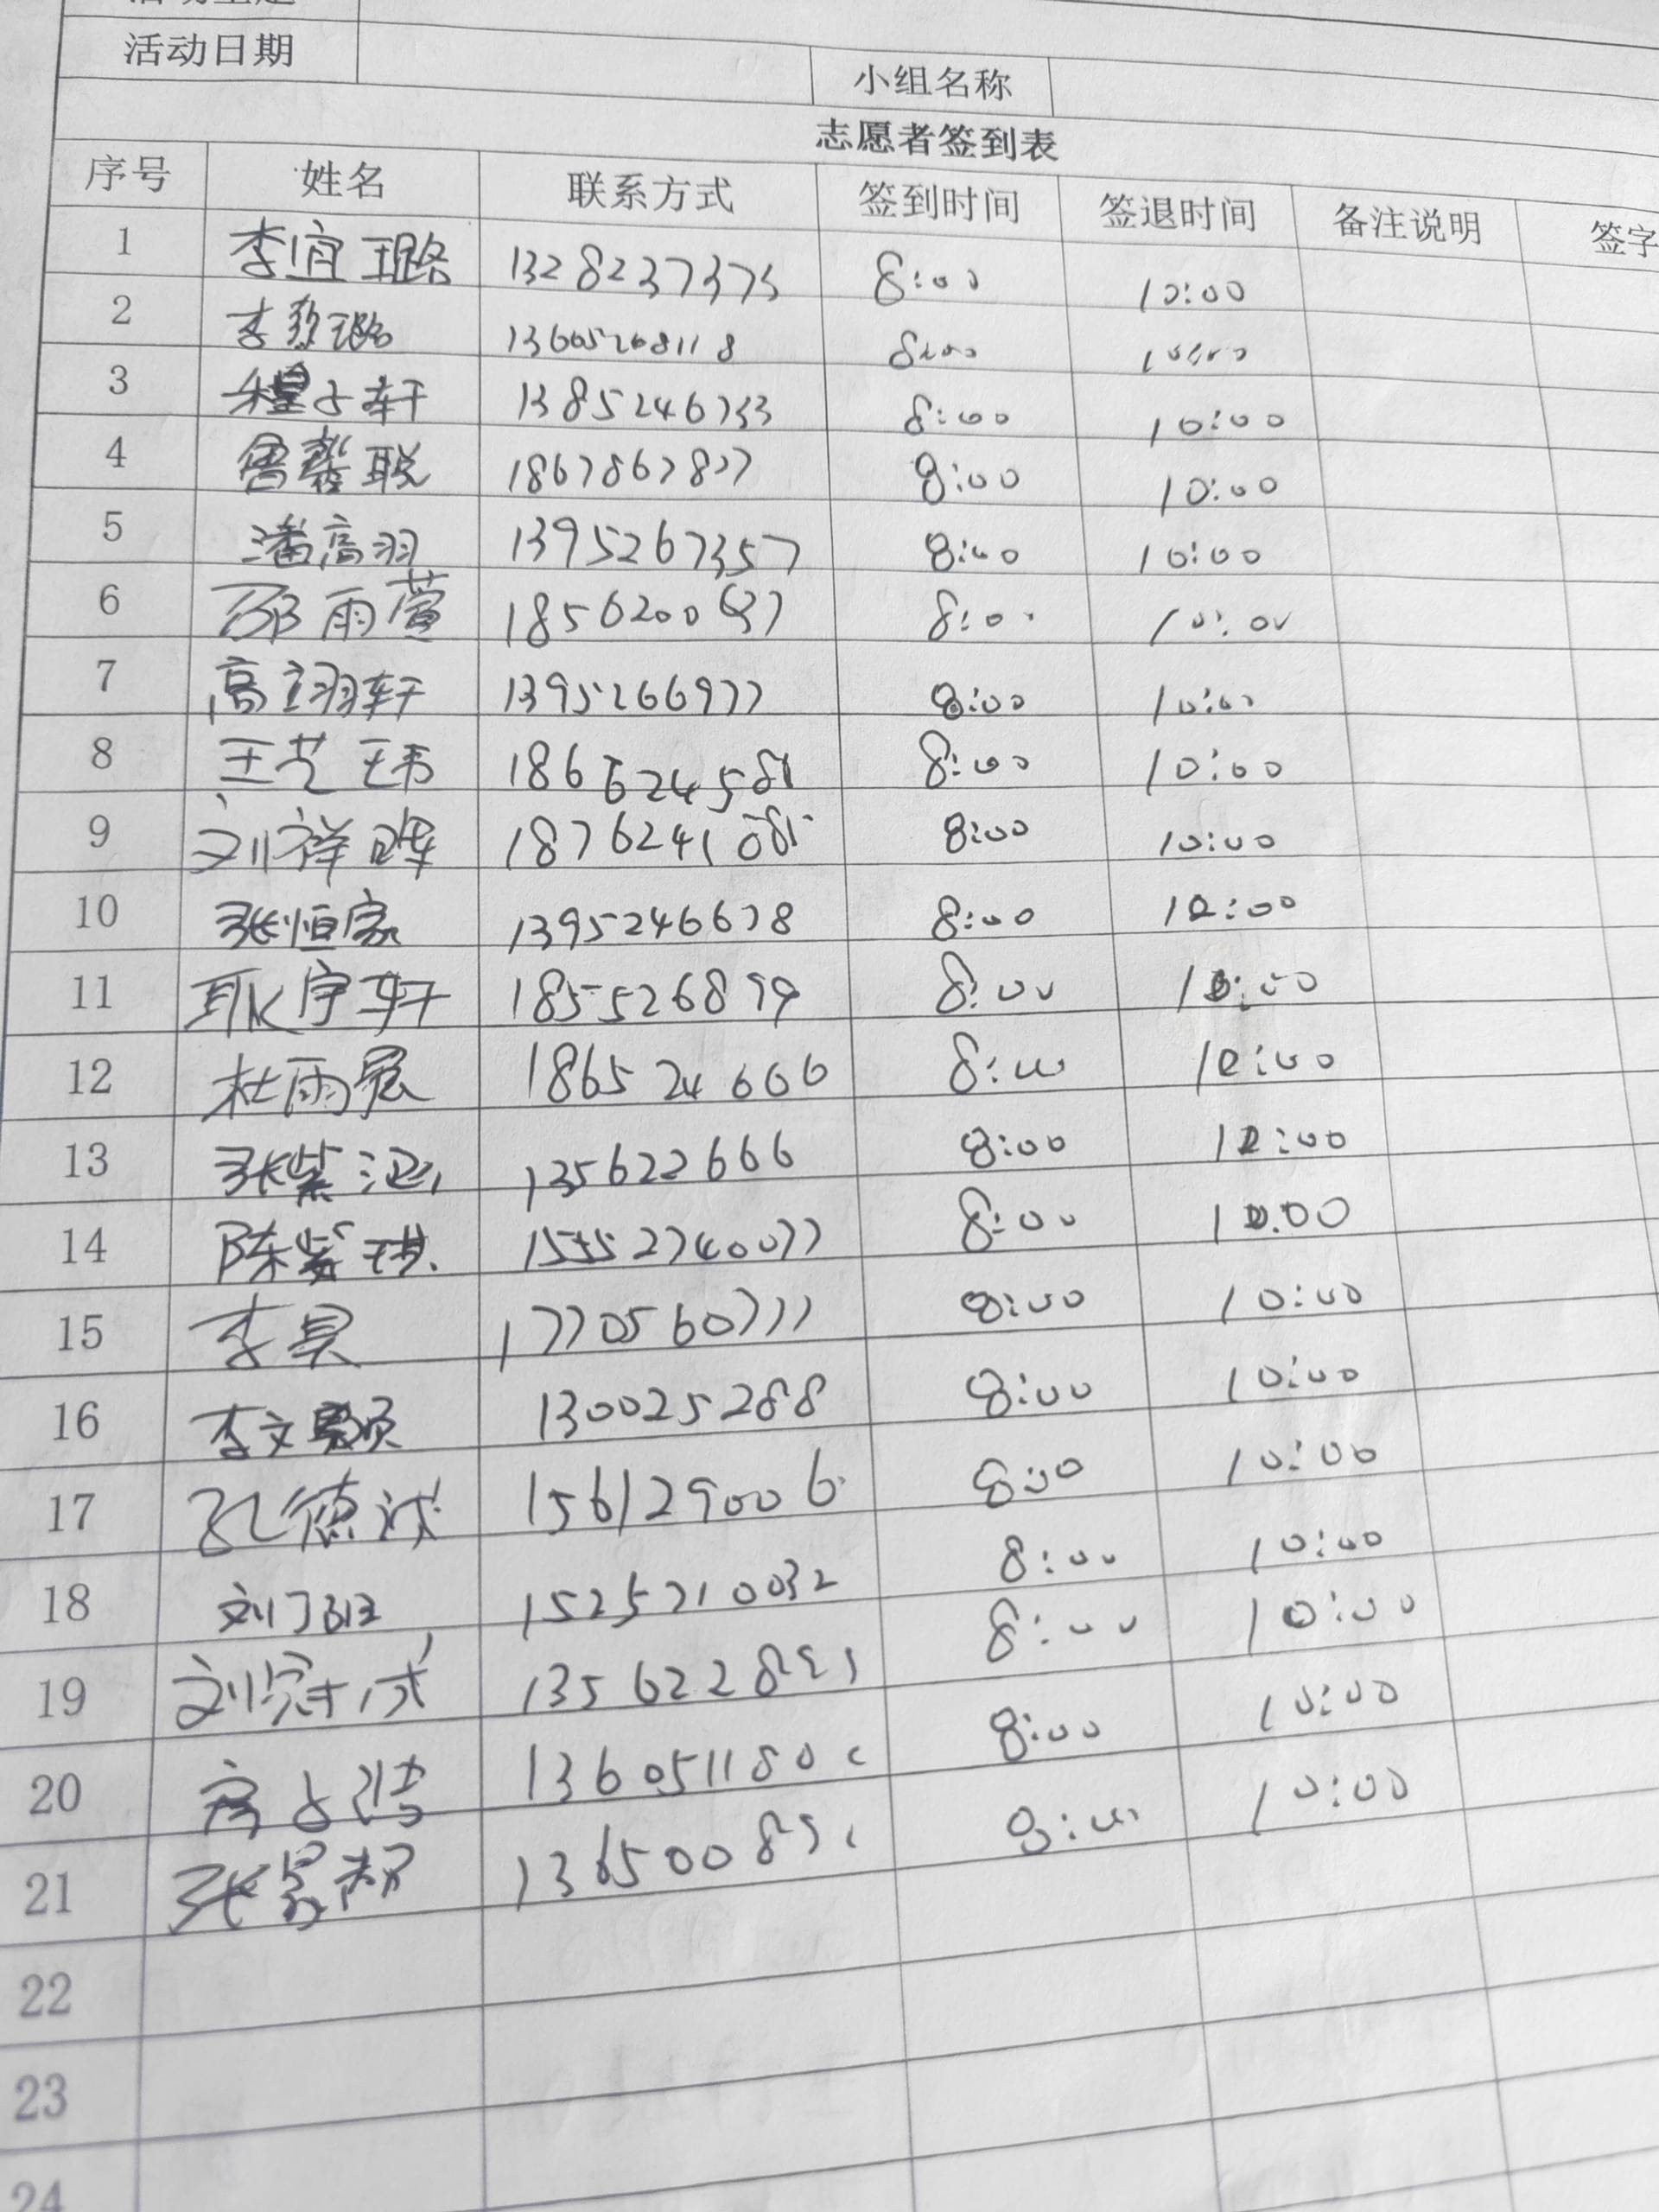 活动日期 小组名称
志愿者签到表
序号 姓名 联系方式 签到时间 签退时间 备注说明 签字
1 李宜璐 1328237375 8:00 10:00
2 李 璐 13605268118 8:00 10:00
3 程子轩 1385246733 8:00 10:00
4 鲁馨聪 1867867877 8:00 10:00
5 潘高羽 1395267357 8:00 10:00
6 邵雨萱 1856200 8:00 10:00
7 高翊轩 1395266977 8:00 10:00
8 王艺玮 1866624581 8:00 10:00
9 刘祥晖 1876241081 8:00 10:00
10 张恒家 1395246678 8:00 10:00
11 耿宇轩 1855526899 8:00 10:00
12 杜雨宸 186524666 8:00 10:00
13 张紫涵 135622666 8:00 10:00
14 陈紫琪 15552740077 8:00 10:00
15 李昊 1770560777 8:00 10:00
16 李文颢 130025288 8:00 10:00
17 孔德诚 156129006 8:00 10:00
18 刘 1525710032 8:00 10:00
19 刘冠成 8:00 10:00
20 8:00 10:00
21 张 8:00 10:00
22
23
24